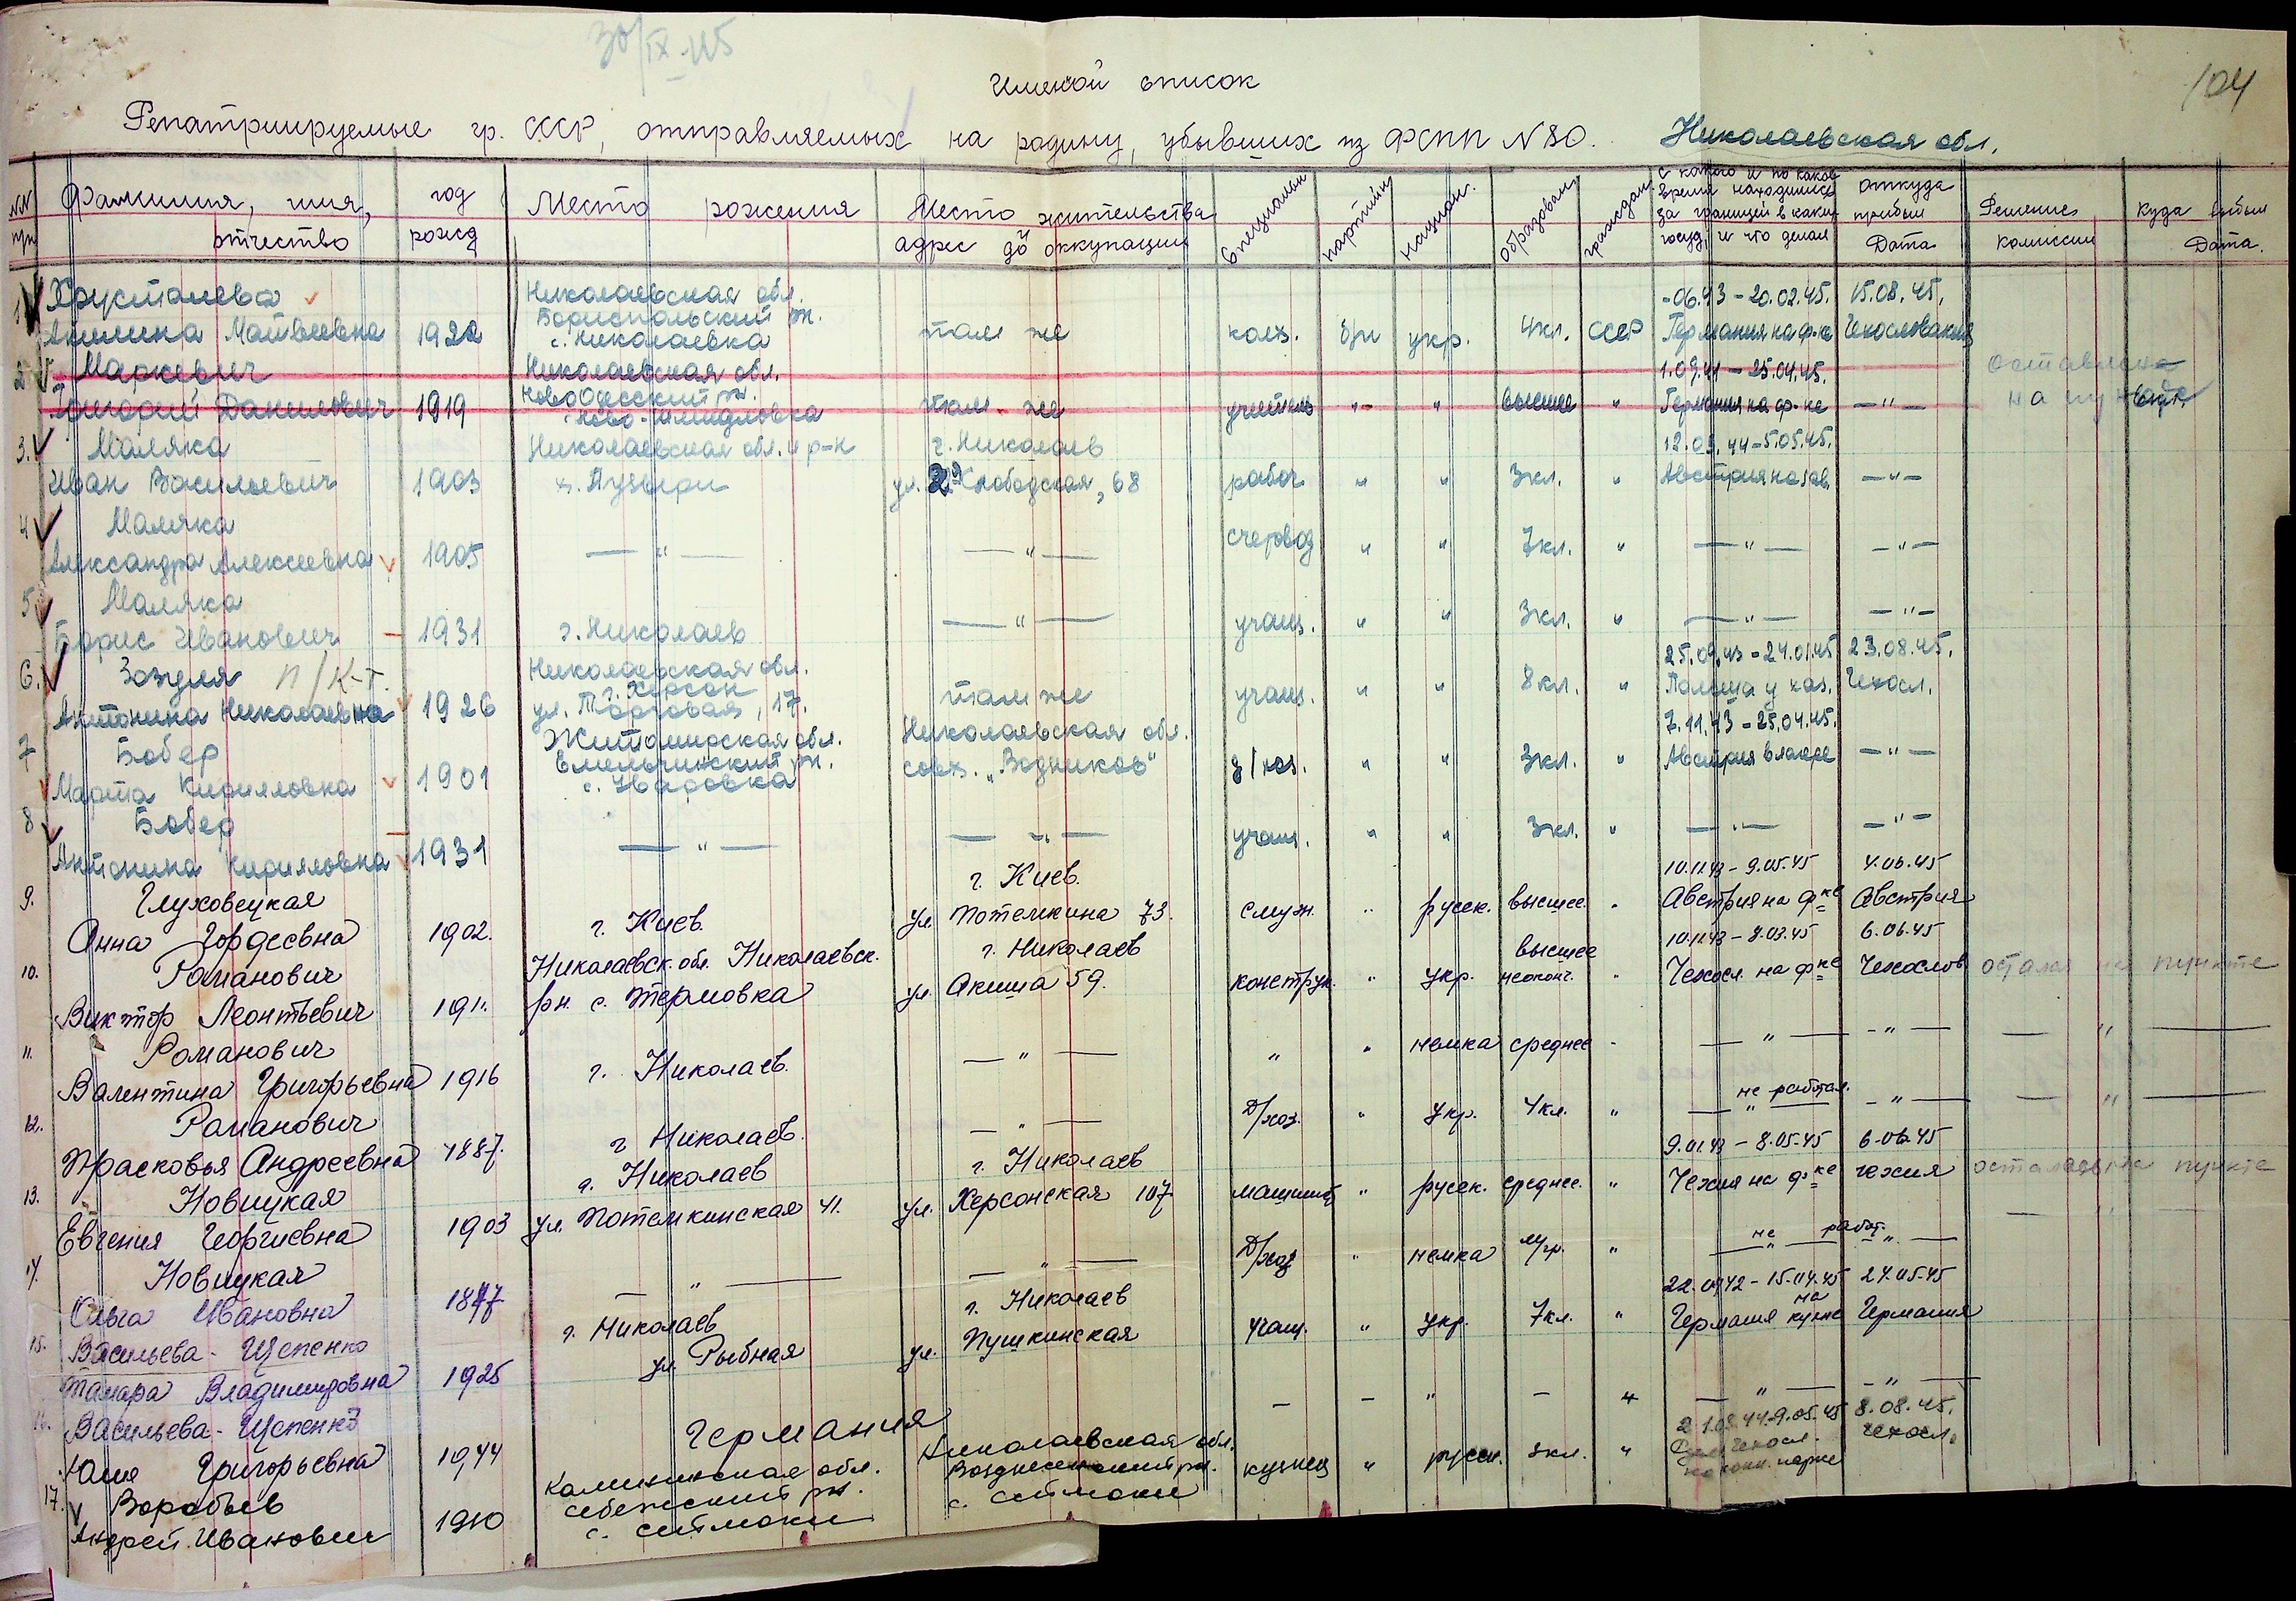 30/IX-45
104
Именой список
Репатриируемые гр. СССР, отправляемых на родину, убывших из ФСПП N 80. Николаевская обл.
NN п/п
Фамилия, имя, отчество
год рожд
Место рожения
Место жительства и адрес до оккупации
Специальн
партийн
национ.
образован
граждан.
с какого и по каков время находился за границей в каком госуд. и что делал
откуда прибыл Дата
Решение комиссии
Куда выбыл Дата.
1 Хрусталева
Акилина Майвеевна 1922
Николаевская обл.
Бориспольский рн.
с. Николаевка
там же колх. б/п укр. 4кл. СССР
-06.43 - 20.02.45. 15.08.45.
Германия на ф-ке Чехословакия
2 Маркевич
Григорий Данилович 1919
Николаевская обл.
Ново Одесский рн.
там же учитель " " высшее "
1.09.41 - 25.04.45.
Германия на ф-ке -"-
оставлена
на пункте
3. Маляка
Иван Васильевич 1903
Николаевская обл. и р-н
х. Пузыри
г. Николаев
ул. 2я Слободская, 68
рабоч " " 3кл. "
12.03.44 - 5.05.45.
Австрия на зав. -"-
4 Маляка
Александра Алексеевна 1905
-"- -"- счетовод " " 7кл. " -"- -"-
5 Маляка
Борис Иванович 1931
г. Николаев -"- учащ. " " 3кл. " -"- -"-
6. Зоздля п/к-т.
Антонина Николаевна 1926
Николаевская обл.
г. Херсон
ул. Торговая, 17.
там же учащ. " " 8кл. "
25.09.43 - 24.01.45 23.08.45.
Польша у хоз. Чехосл.
7 Бобер
Марта Кирилловна 1901
Житомирская обл.
Емельчинский рн.
с. Уваровка
Николаевская обл.
совх. "Водников"
д/хоз. " " 3кл. "
7.11.43 - 25.04.45.
Австрия в лагере -"-
8 Бобер
Антонина Кирилловна 1931
-"- -"- учащ. " " 3кл. " -"- -"-
9. Глуховецкая
Анна Гордеевна 1902.
г. Киев.
г. Киев.
ул. Потемкина 73.
служ. " русск. высшее. "
10.11.43 - 9.05.45 4.06.45
Австрия на ф-ке Австрия
10. Романович
Виктор Леонтьевич 1911.
Николаевск. обл. Николаевск.
рн. с. Терновка
г. Николаев
ул. Акима 59.
конструк. " укр. высшее неоконч. "
10.11.43 - 8.03.45 6.06.45
Чехосл. на ф-ке Чехослов
остался на пункте
11. Романович
Валентина Григорьевна 1916
г. Николаев. -"- " " немка среднее " -"- -"- -"-
12. Романович
Прасковья Андреевна 1887.
г. Николаев. -"- Д/хоз. " укр. 4кл. "
не работал.
-"- -"- -"-
13. Новицкая
Евгения Георгиевна 1903
г. Николаев
ул. Потемкинская 41.
г. Николаев
ул. Херсонская 107
машинис " русск. среднее. "
9.01.43 - 8.05.45 6.06.45
Чехия на ф-ке чехия
осталась на пункте
14. Новицкая
Ольга Ивановна 1877
-"- -"- Д/хоз " немка м/гр. "
не работ.
-"- -"- -"-
15. Васильева-Щепенко
Тамара Владимировна 1925
г. Николаев
ул. Рыбная
г. Николаев
ул. Пушкинская
учащ. " укр. 7кл. "
22.09.42 - 15.04.45 24.05.45
Германия на кухне Германия
16. Васильева-Щепенко
Юлия Григорьевна 1944
Германия - - " - " -"- -"-
17. Воробьев
Андрей Иванович 1910
Калининская обл.
Себежский рн.
с. Ситмоки
Николаевская обл.
Вознесенский рн.
с. Ситмоки
кузнец " русск. 8кл. "
21.03.44-9.05.45 8.08.45.
Чехосл. Чехосл.